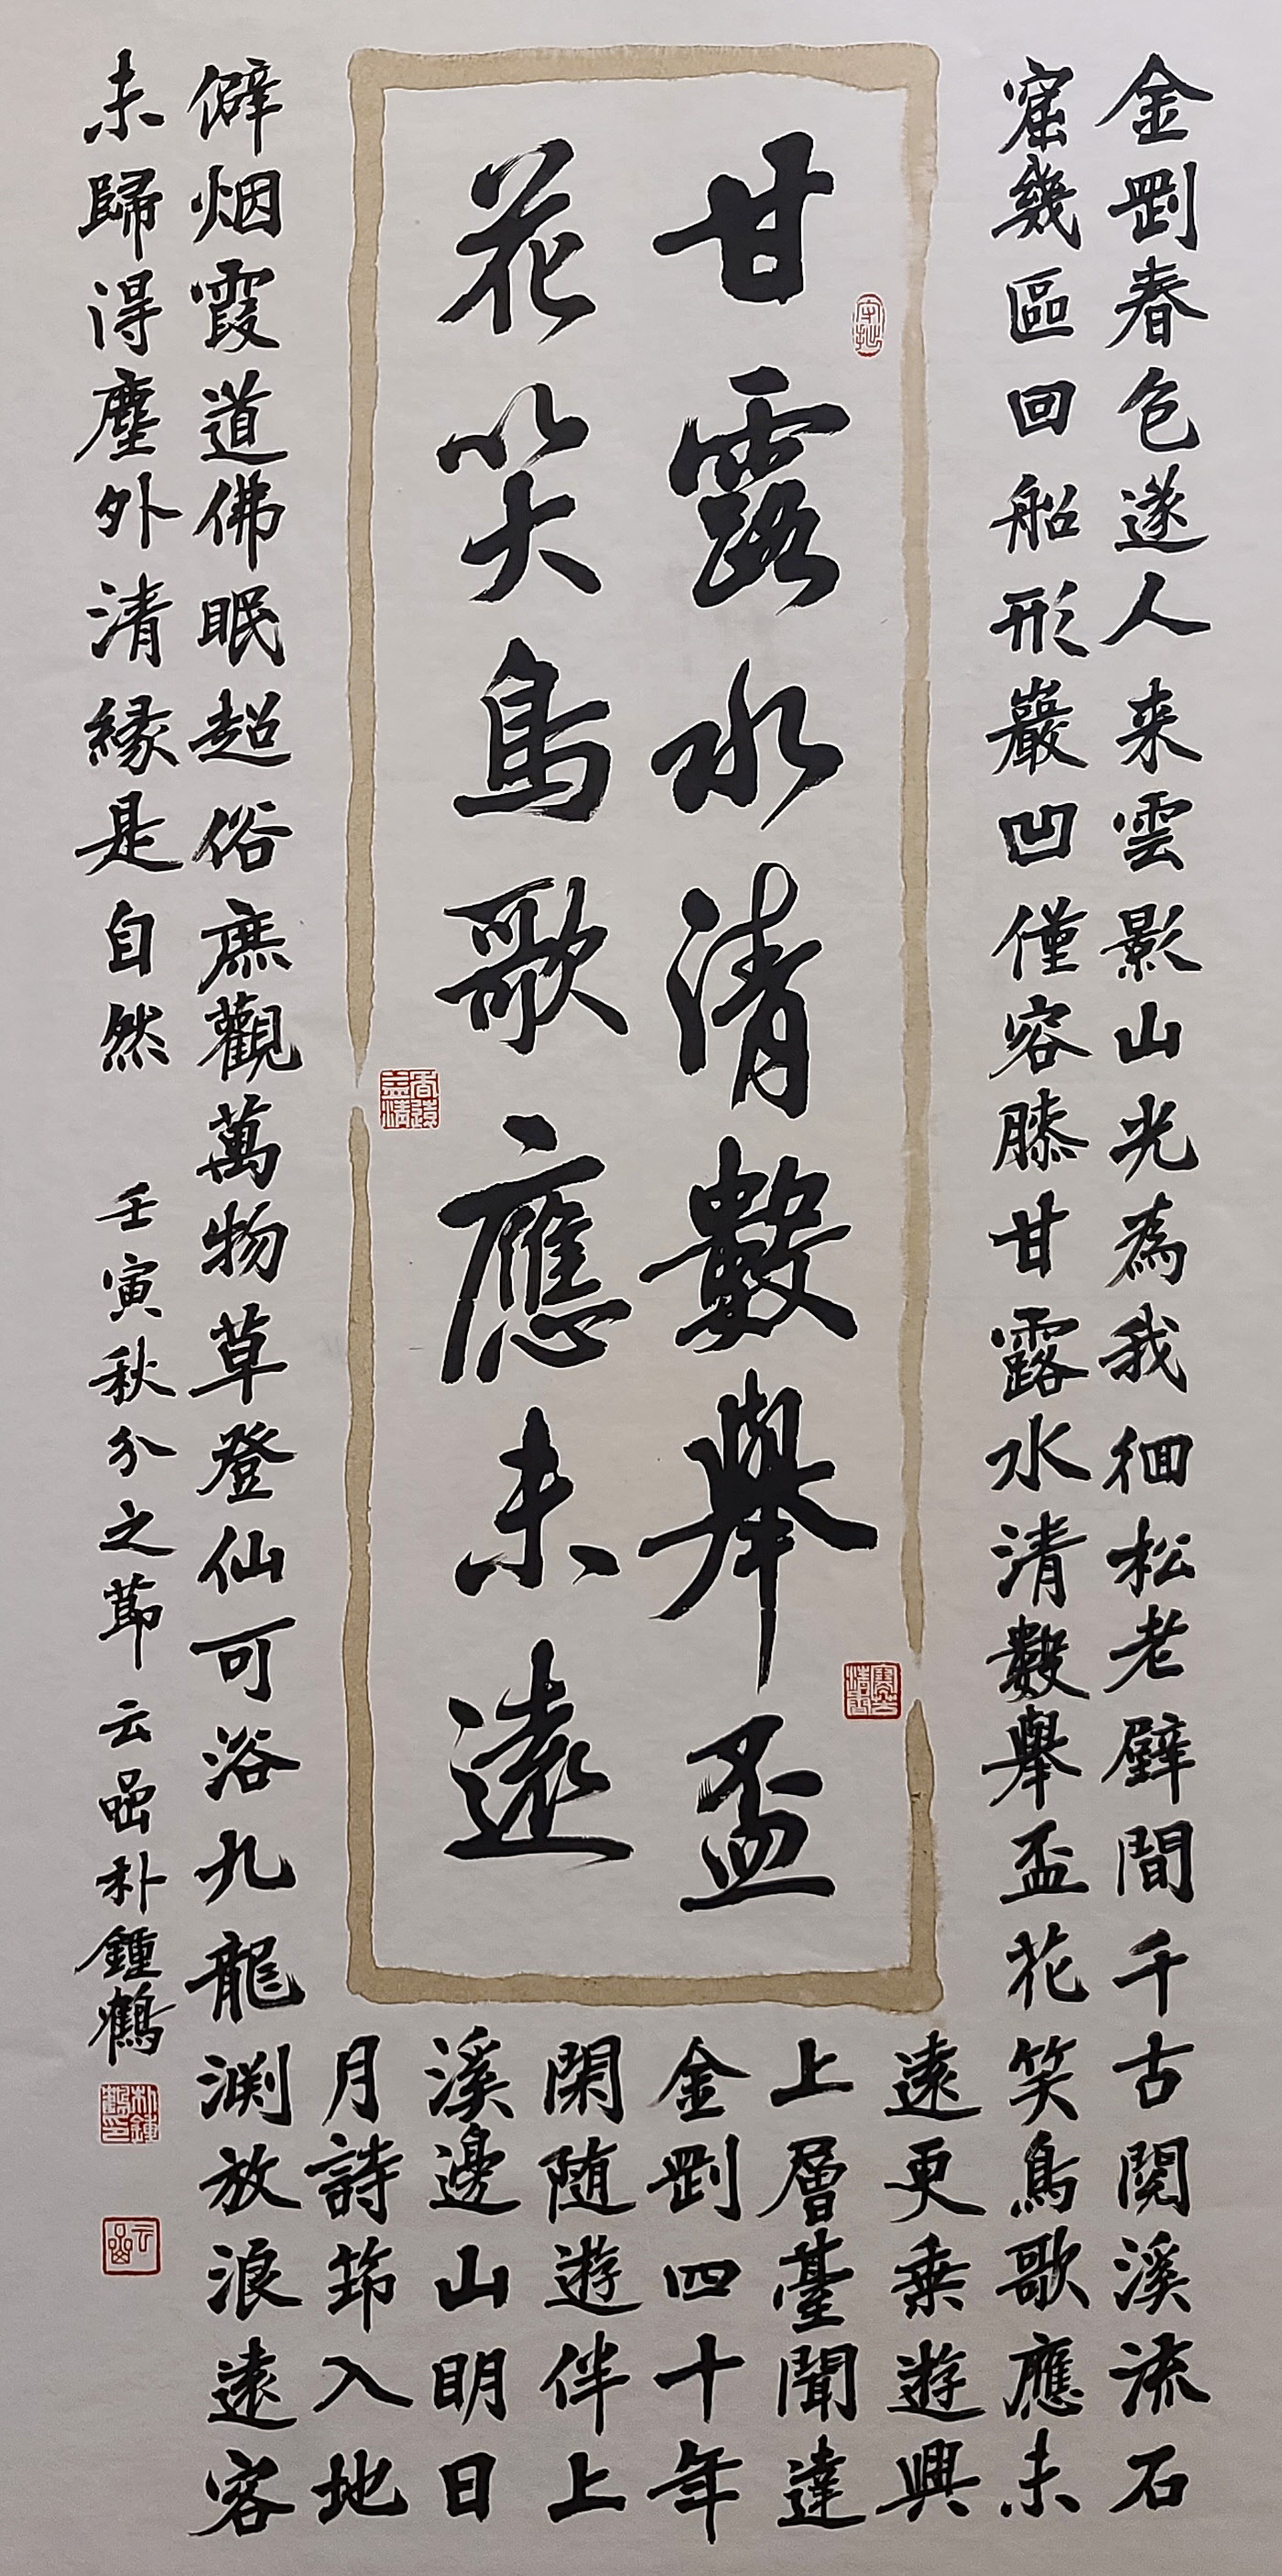 甘露水清數擧盃
花笑鳥歌應未遠
金剛春色遂人来雲影山光為我徊松老壁間千古閱溪流石
窟幾區回船形巖凹僅容膝甘露水清數擧盃花笑鳥歌應未
遠更乗遊興
上層臺聞達
金剛四十年
閑随遊伴上
溪邊山明日
月詩筇入地
僻烟霞道佛眠超俗庶觀萬物草登仙可浴九龍渊放浪遠客
未歸得塵外清緣是自然 壬寅秋分之節 云嵒朴鍾鶴
守拙
香遠益清
朴鍾鶴印
云嵒